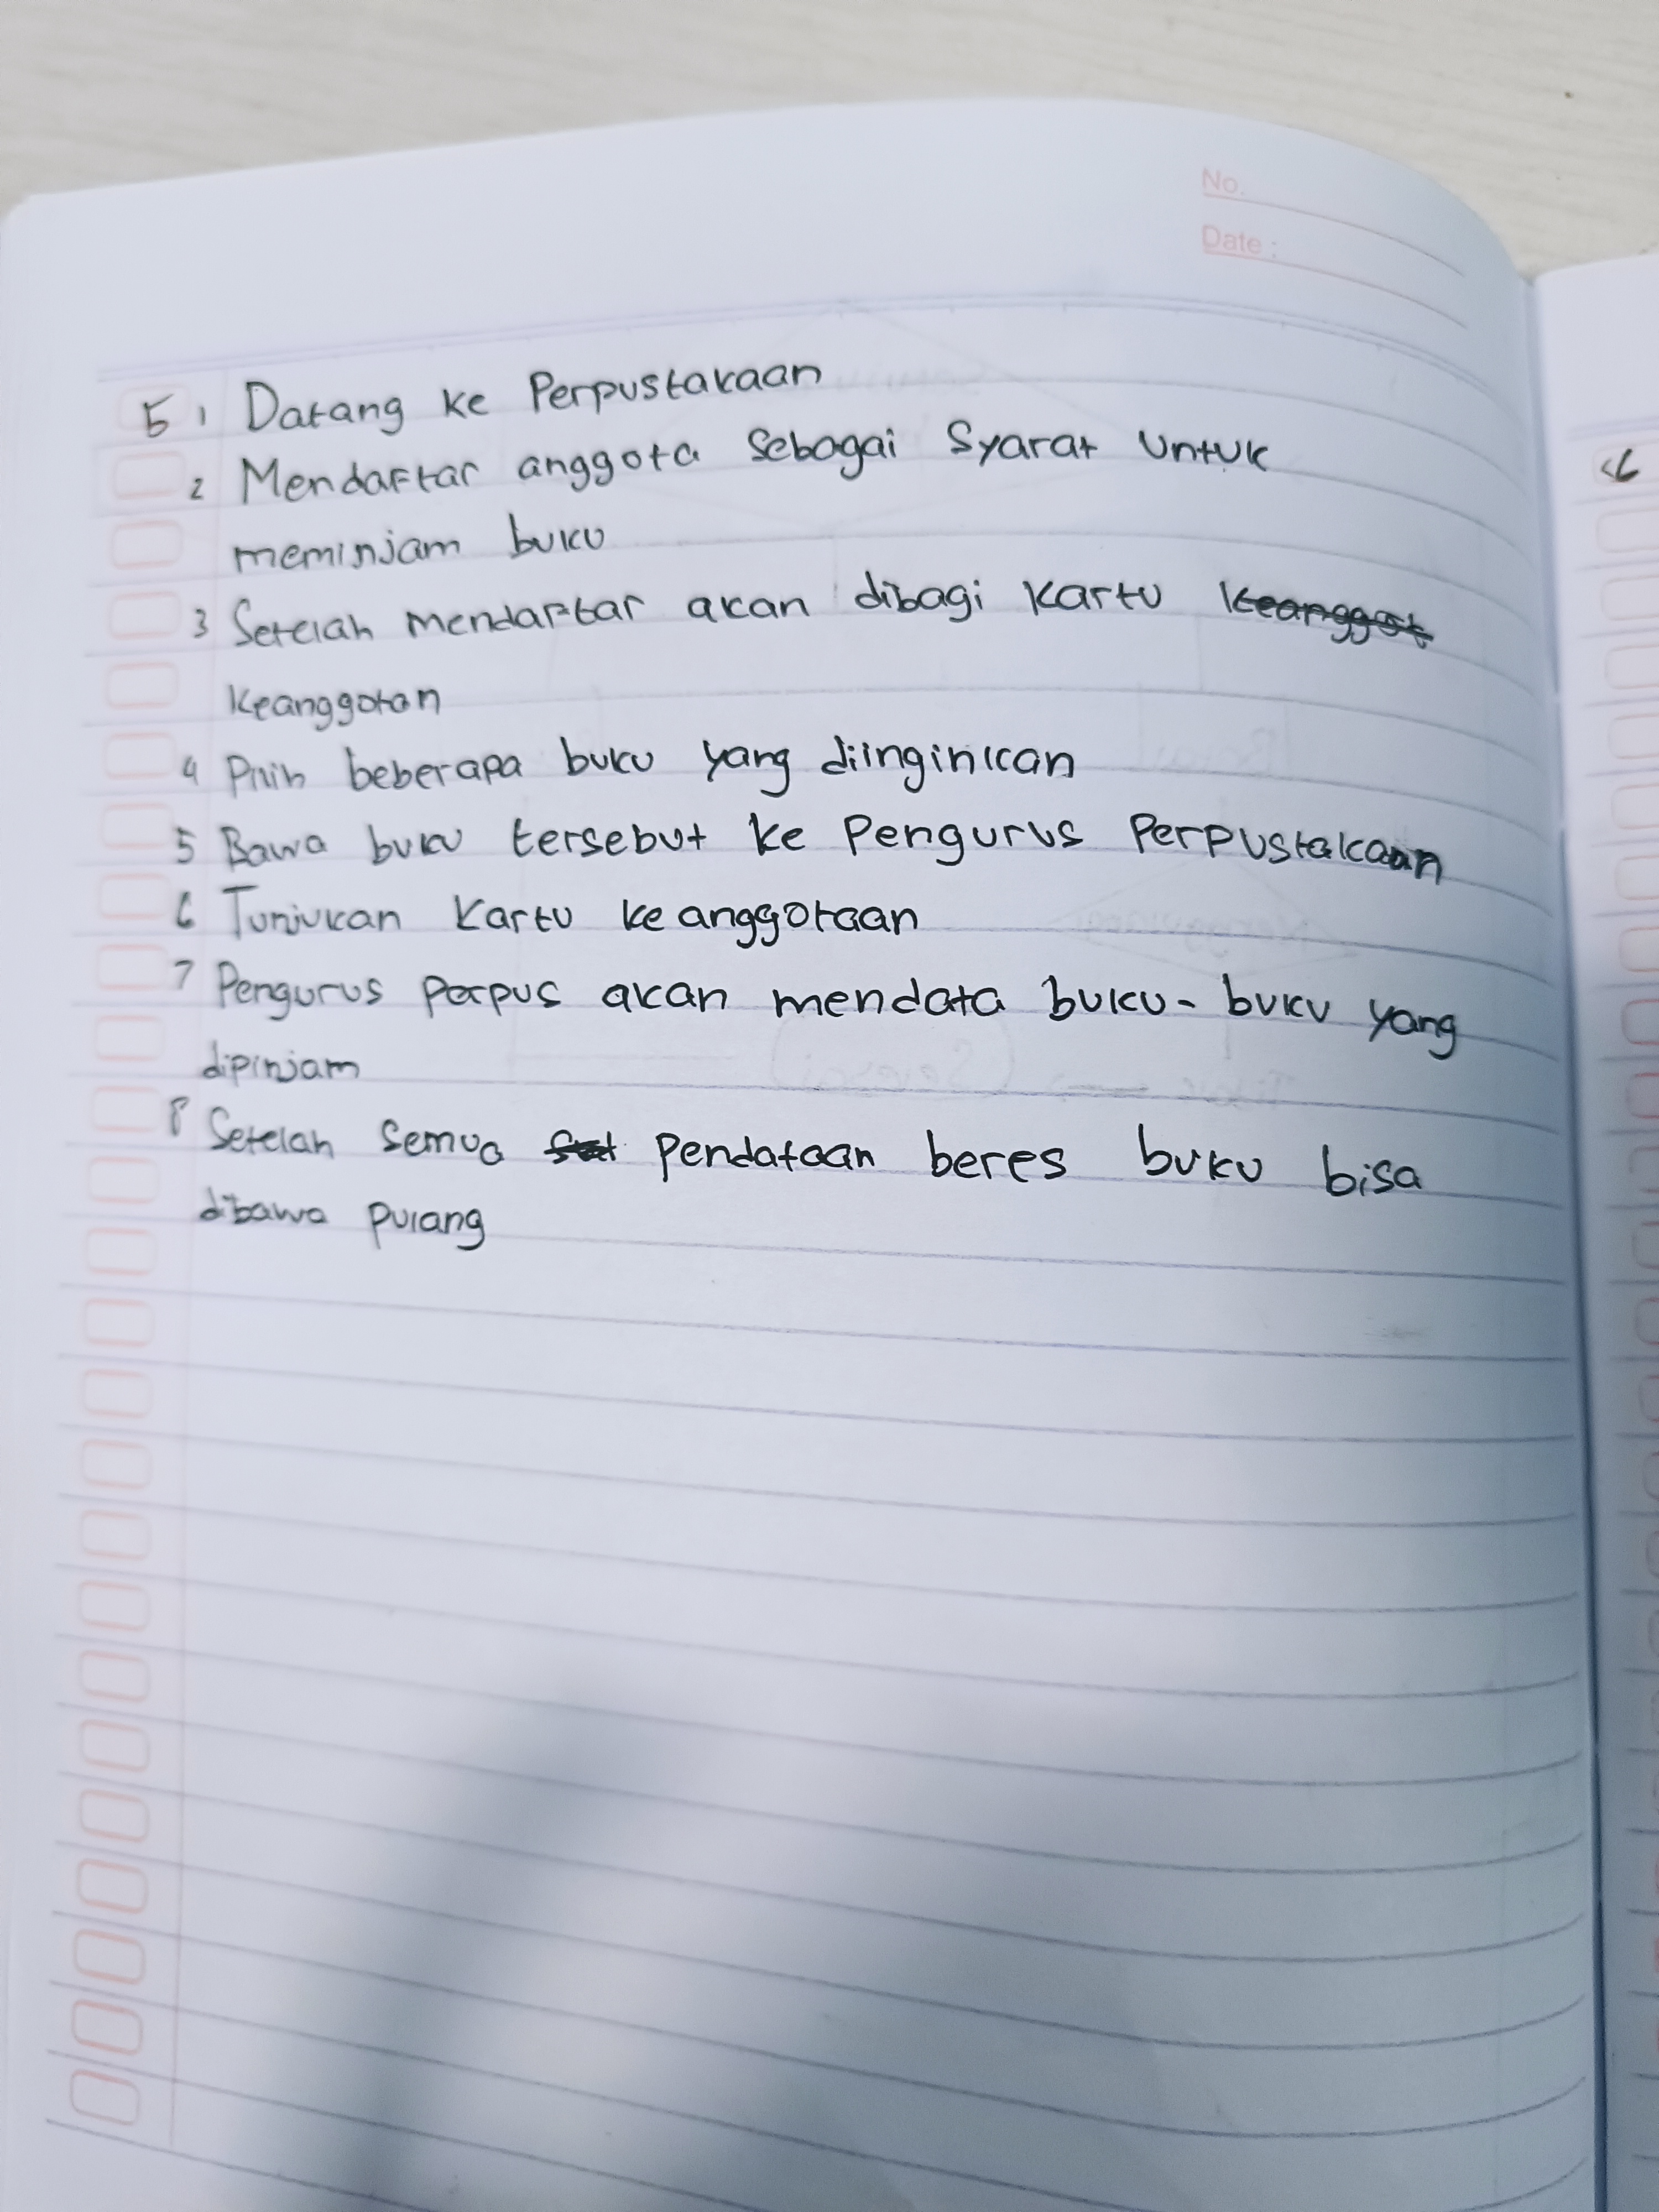 No.
Date :
5 1 Datang ke Perpustakaan
2 Mendaftar anggota Sebagai Syarat Untuk
meminjam buku
3 Setelah mendaftar akan dibagi Kartu Keanggot
Keanggotan
4 Pilih beberapa buku yang diinginkan
5 Bawa buku tersebut ke Pengurus Perpustakaan
6 Tunjukan Kartu keanggotaan
7 Pengurus perpus akan mendata buku-buku yang
dipinjam
8 Setelah Semua Pendataan beres buku bisa
dibawa pulang
6